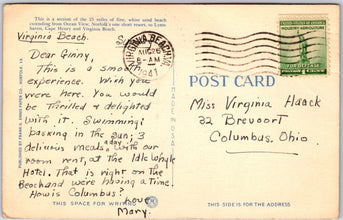 This is a section of the 25 miles of fine, white sand beach
extending from Ocean View, Norfolk's one short resort, to Lynn-
haven, Cape Henry and Virginia Beach.
Virginia Beach.
Dear Ginny,
This is a smooth
experience. Wish you
were here. You would
be thrilled & delighted
with it. Swimming;
basking in the sun; 3
delicious meals a day with our
room rent, at the Idle Whyle
Hotel. That is right on the
Beach and were having a time.
How is Columbus?
Love
Mary.
THIS SPACE FOR WRITING
PUBLISHED BY FRANK D. ENNIS PAPER CO., NORFOLK, VA.
MADE IN U.S.A.
VIRGINIA BEACH, VA.
AUG
AM
1941
UNITED STATES POSTAGE
INDUSTRY AGRICULTURE
FOR DEFENSE
1¢
POST CARD
Miss Virginia Haack
32 Brevoort
Columbus, Ohio.
THIS SIDE IS FOR THE ADDRESS